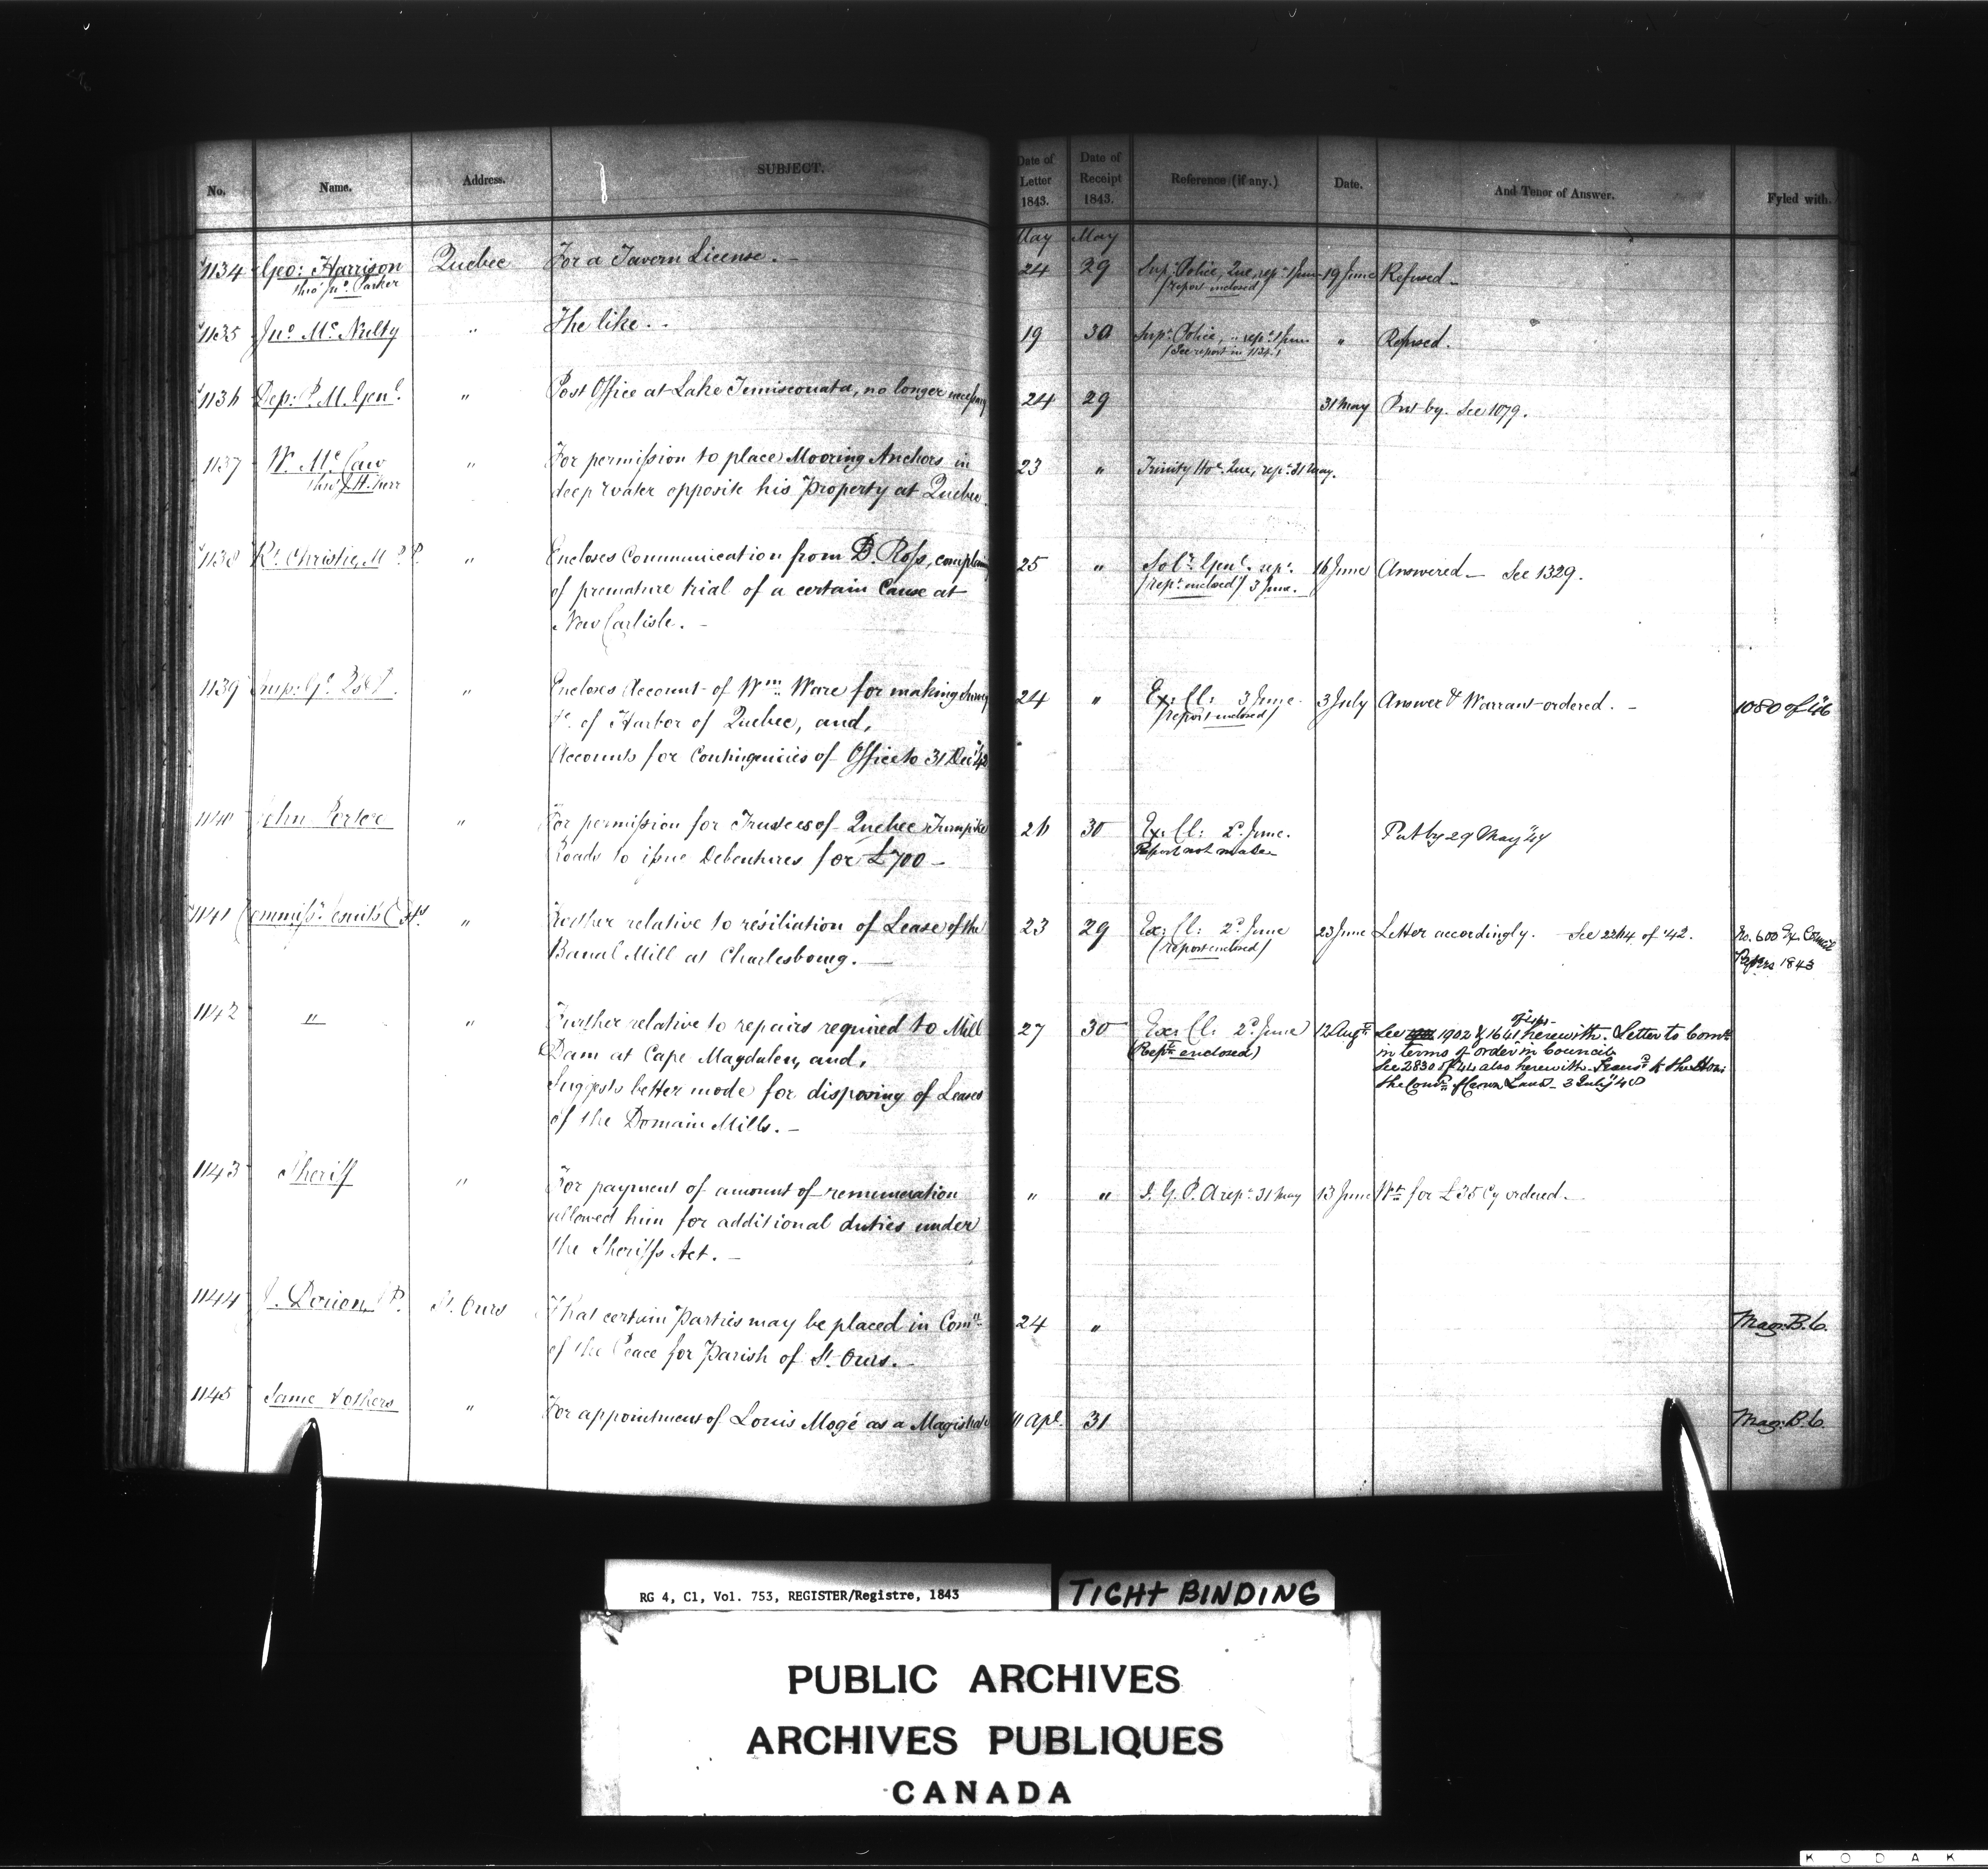 No. Name. Address. SUBJECT. Date of Letter 1843. Date of Receipt 1843. Reference (if any.) Date. And Tenor of Answer. Fyled with.
May May
1134 Geo: Harrison Quebec For a Tavern License. 24 29 Sup: Police, Que, rep: 1 June 19 June Refused
thro' Jno. Parker (report enclosed)
1135 Jno. McNulty " The like. 19 30 Supt. Police, " rep: 1 June " Refused.
(See report in 1134.)
1136 Dep: P. M. Genl. " Post Office at Lake Temiscouata, no longer necessary 24 29 31 May Put by. See 1079.
1137 W. McCaw " For permission to place Mooring Anchors in 23 " Trinity Ho. Que, rep: 31 May.
thro' J. H. Kerr deep water opposite his Property at Quebec.
1138 Rt. Christie, M.P.P. " Encloses Communication from D. Ross, complaining 25 " Solr. Genl. rep: 16 June Answered — See 1329.
of premature trial of a certain Cause at (rept. enclosed) 3 June.
New Carlisle.
1139 " Encloses Account of Wm. Ware for making 24 " Ex: Cl: 3 June 3 July Answer & Warrant ordered. 1080 of 46
&c. of Harbor of Quebec, and, (report enclosed)
Accounts for Contingencies of Office to 31 Dec '42
1140 John Porter " For permission for Trustees of Quebec Turnpike 26 30 Ex: Cl: 2d. June. Put by 29 May '44
Roads to issue Debentures for £700 — Report not made
1141 Commissr. Jesuits' Ests " Further relative to résiliation of Lease of the 23 29 Ex: Cl: 2d. June 23 June Letter accordingly. See 2264 of '42. No. 600 Ex. Council
Banal Mill at Charlesbourg. (report enclosed) Papers 1843
1142 " " Further relative to repairs required to Mill 27 30 Ex: Cl: 2d. June 12 Augt. See 1902 & 1641 herewith. Letter to Comr.
Dam at Cape Magdalen, and, (Rept. enclosed) in terms of order in Council.
Suggests better mode for disposing of Leases See 2830 of 44 also herewith. Transd. to the Hon:
of the Domain Mills. — the Comr. of Crown Lands — 3 July 48
1143 Sheriff " For payment of amount of remuneration " " I. G. P. A rep: 31 May 13 June Wt. for £35 Cy ordered.
allowed him for additional duties under
the Sheriffs Act. —
1144 J. Dorion, St. Ours That certain Parties may be placed in Comn. 24 " Mag: B.C.
of the Peace for Parish of St. Ours.
1145 Same & others " For appointment of Louis Mogé as a Magistrate 11 Apl. 31 Mag: B.C.
RG 4, C1, Vol. 753, REGISTER/Registre, 1843
TIGHT BINDING
PUBLIC ARCHIVES
ARCHIVES PUBLIQUES
CANADA
KODAK